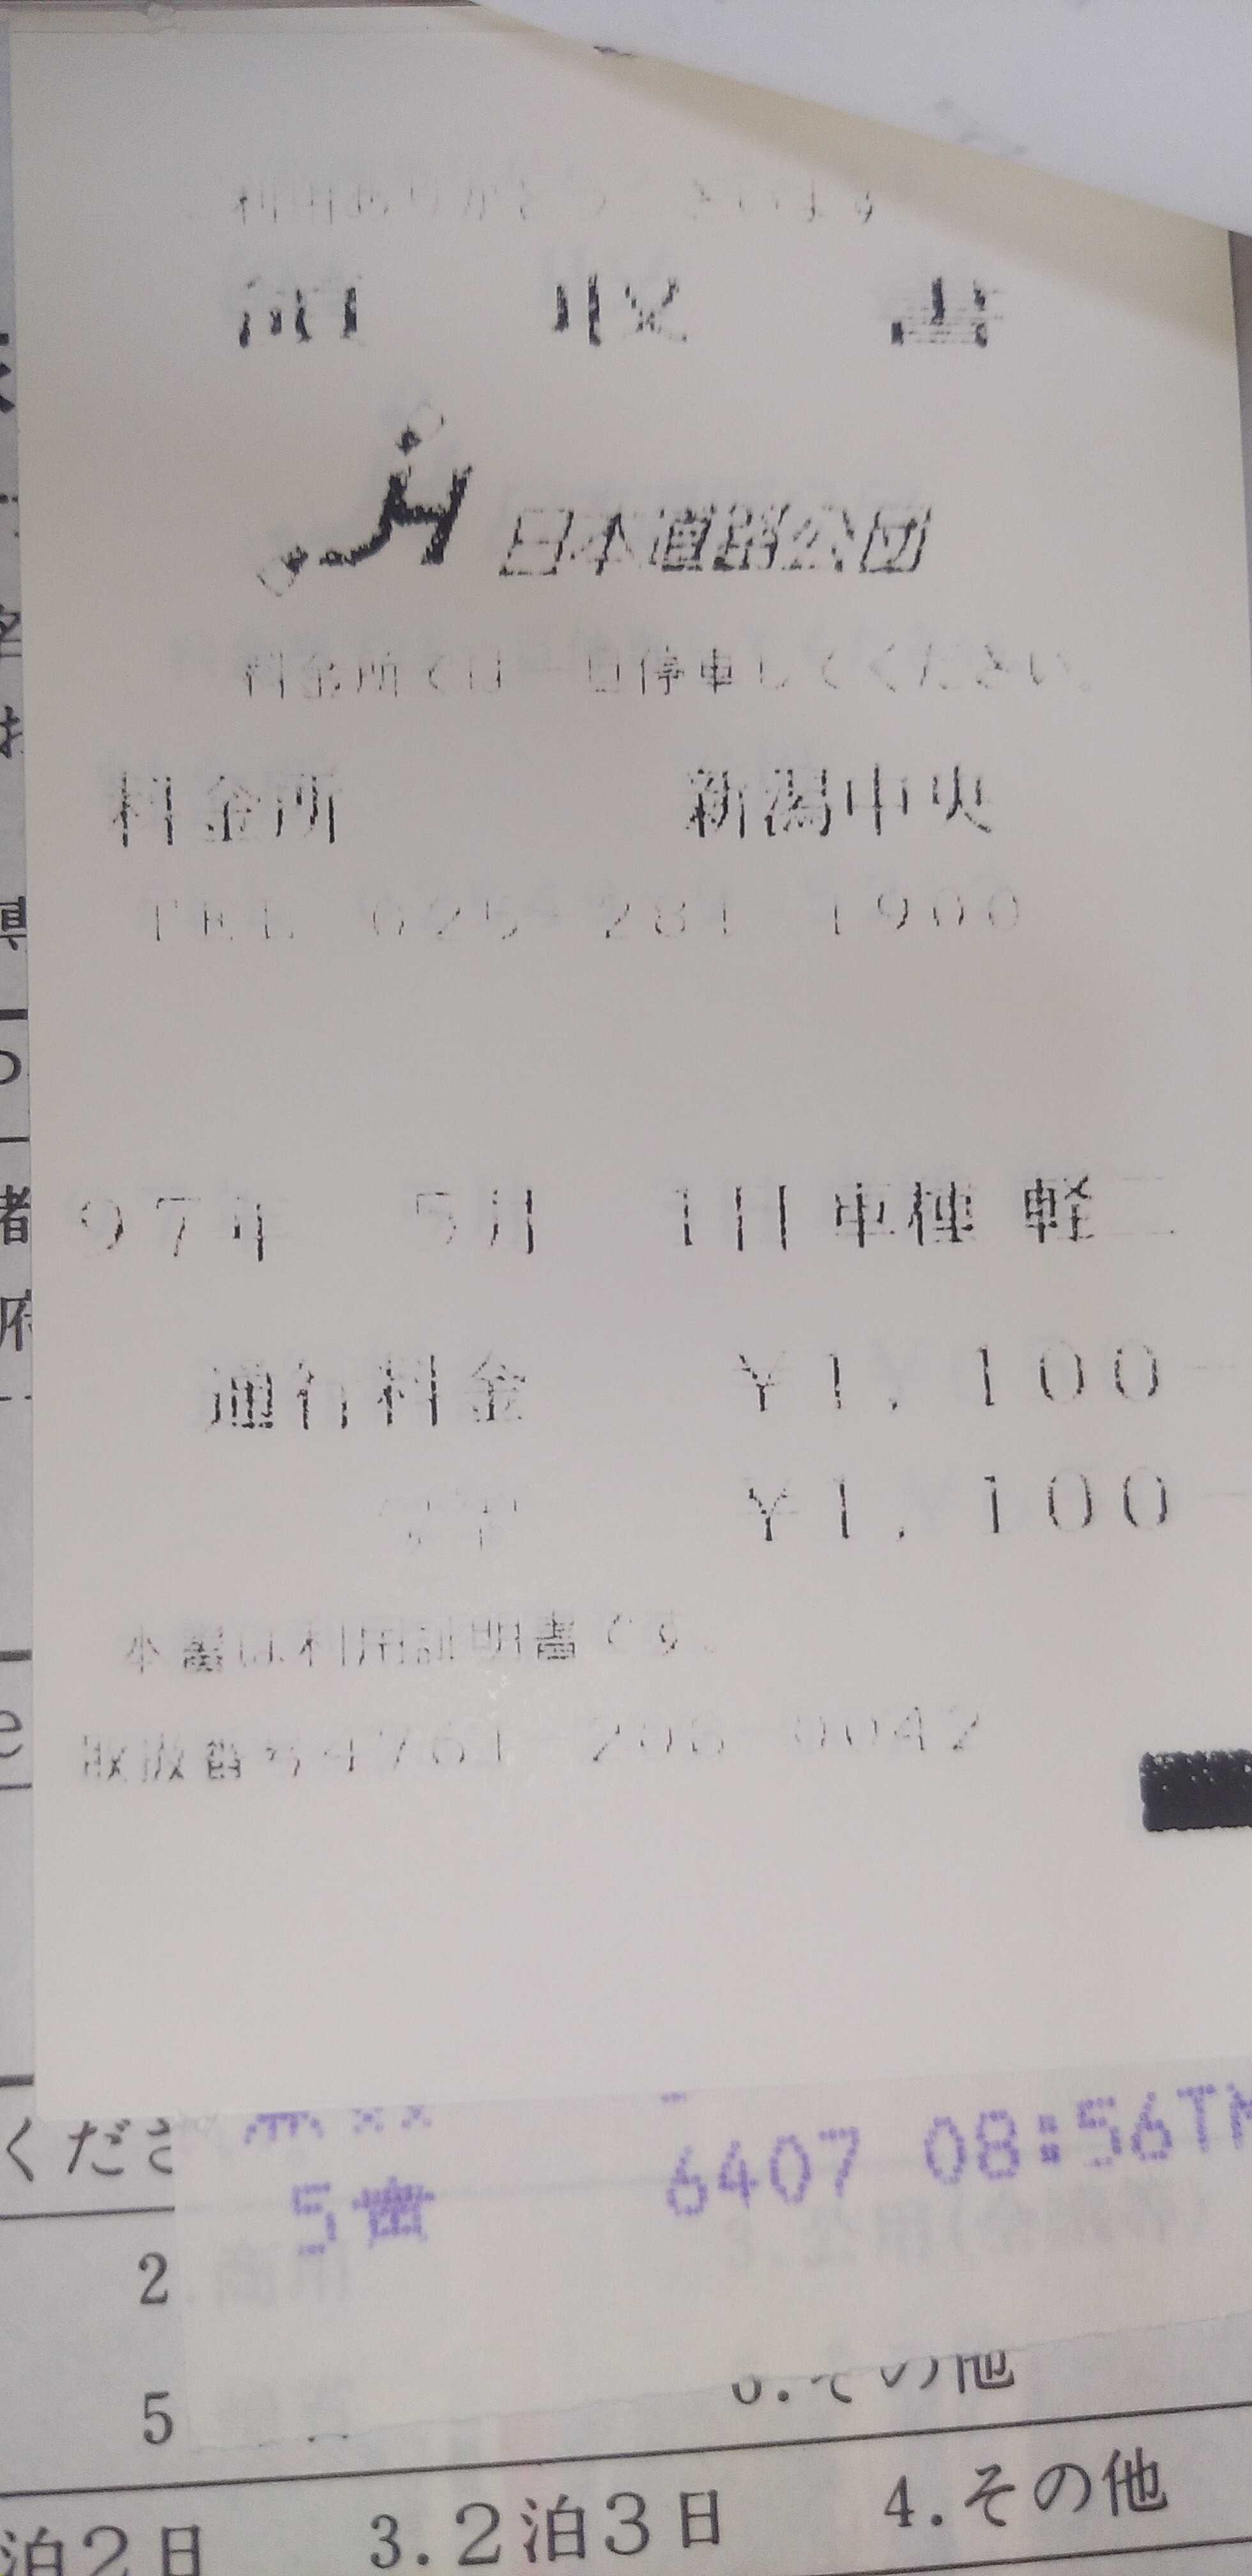 利用ありがとうございます
領収書
JH 日本道路公団
料金所では一旦停車してください。
料金所 新潟中央
TEL 025-281-1900
97年 5月 1日 車種 軽二
通行料金 ¥1,100
¥1,100
本書は利用証明書です。
取扱番号4761-206-0042
6407 08:56TM
5責
くださ
2
5 6.その他
泊2日 3.2泊3日 4.その他